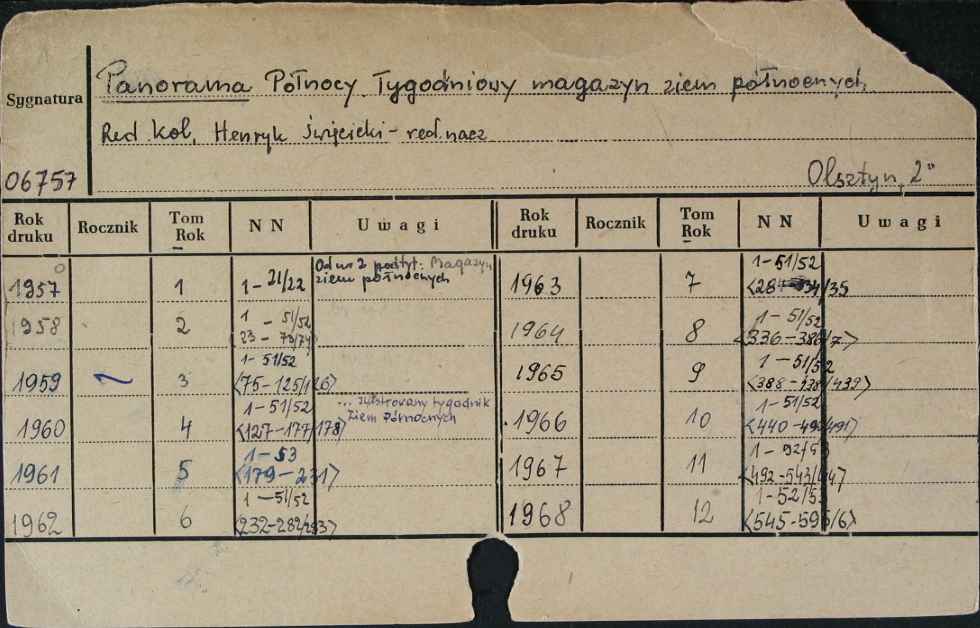 Panorama Północy Tygodniowy magazyn ziem północnych
Sygnatura
Red kol, Henryk Święcicki - red. nacz
06757
Olsztyn, 2"
Rok druku Rocznik Tom Rok NN Uwagi Rok druku Rocznik Tom Rok NN Uwagi
1957 1 1-21/22 Od nr 2 podtyt: Magazyn ziem północnych
1958 2 1 - 51/52
1959 3 1-51/52 <75-125/126>
1960 4 1-51/52 <127-177/178> tygodnik ziem północnych
1961 5 1-53 <179-231>
1962 6 1-51/52 <232-282/283>
1963 7 1-51/52
1964 8 1-51/52
1965 9 1-51/52 <388-438/439>
1966 10 1-51/52
1967 11
1968 12